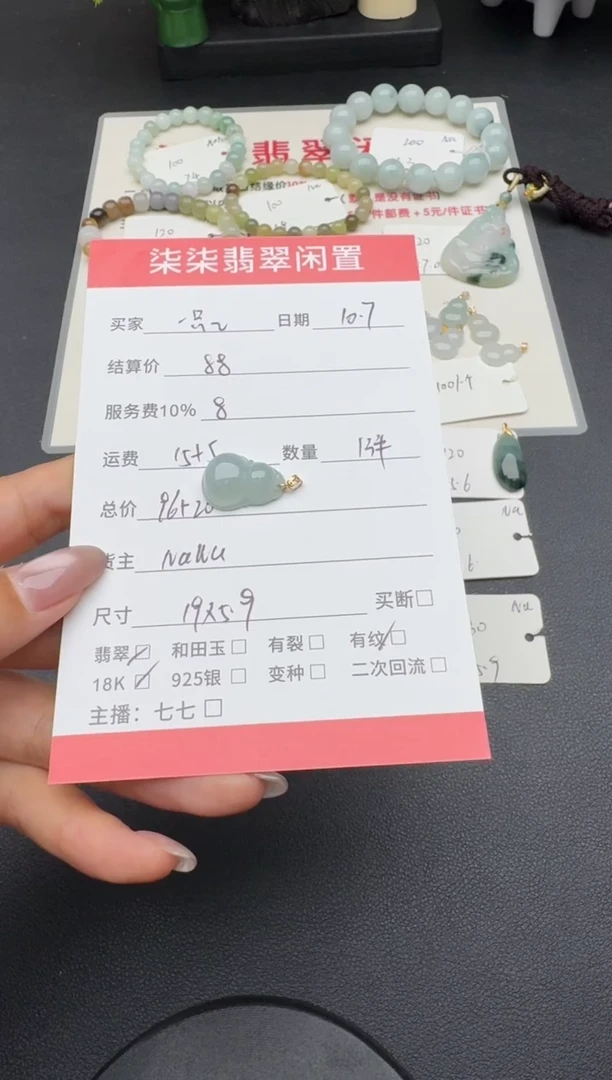 100
200
Na
翡翠
100
120
件邮费+5元/件证书
柒柒翡翠闲置
买家 日期 10.7
结算价 88
服务费10% 8
运费 15+5 数量 1件
总价 96+20
货主 NaNu
尺寸 19×5.9 买断□
翡翠☑ 和田玉□ 有裂□ 有纹☑
18K☑ 925银□ 变种□ 二次回流□
主播：七七□
Na
Na